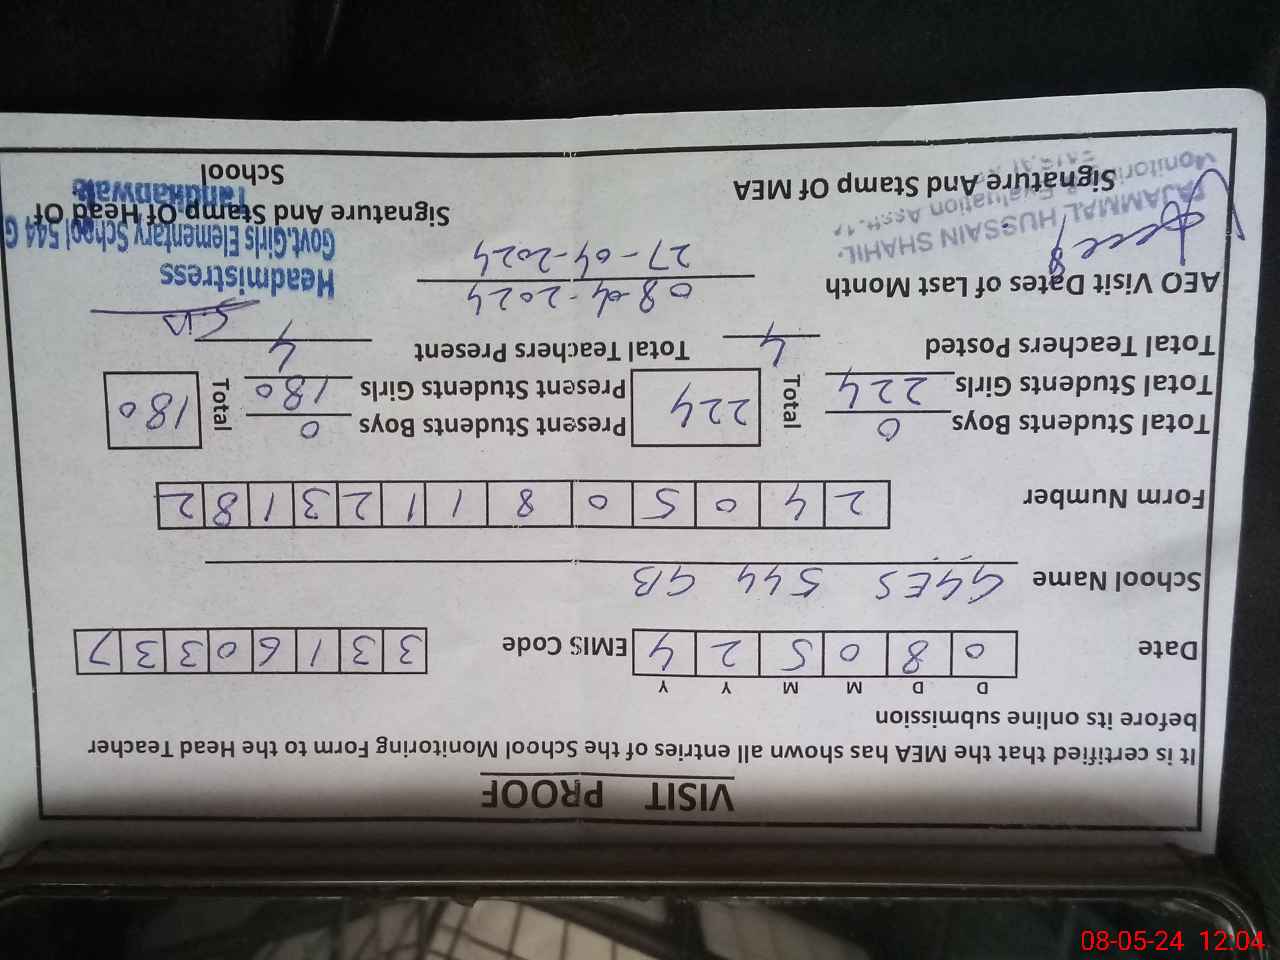 VISIT PROOF
It is certified that the MEA has shown all entries of the School Monitoring Form to the Head Teacher
before its online submission
D D M M Y Y
Date 0 8 0 5 2 4 EMIS Code 3 3 1 6 0 3 3 7
School Name GGES 544 GB
Form Number 2 4 0 5 0 8 1 1 2 3 1 8 2
Total Students Boys 0 Total 224 Present Students Boys 0 Total 180
Total Students Girls 224 Present Students Girls 180
Total Teachers Posted 4 Total Teachers Present 4
AEO Visit Dates of Last Month 08-04-2024
27-04-2024
Headmistress
Govt.Girls Elementary School 544 G
Tandlianwala
TAJAMMAL HUSSAIN SHAHID
Monitoring & Evaluation Asstt.
Signature And Stamp Of MEA
Signature And Stamp Of Head Of
School
08-05-24 12:04